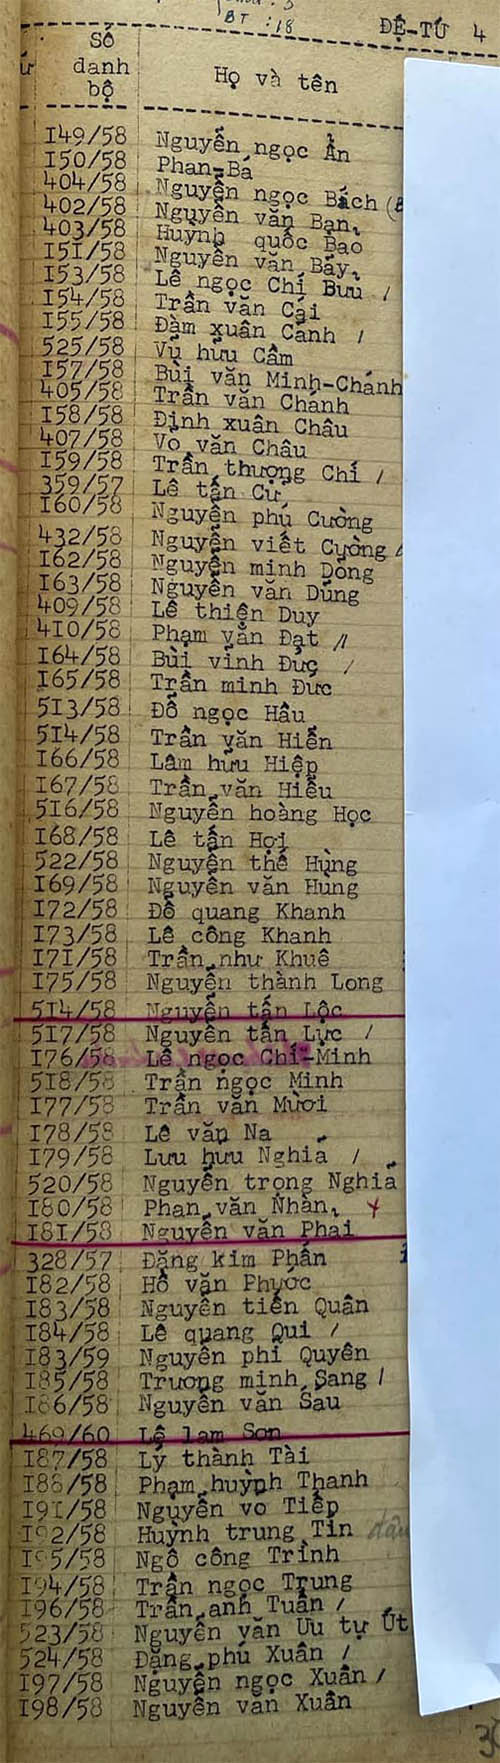 BT : 18
ĐỆ-TỨ 4
Số danh bộ
Họ và tên
I49/58 Nguyễn ngọc Ẩn
I50/58 Phan-Bá
404/58 Nguyễn ngọc Bách
402/58 Nguyễn văn Bạn
403/58 Huỳnh quốc Bao
I5I/58 Nguyễn văn Bảy
I53/58 Lê ngọc Chí Bửu /
I54/58 Trần văn Cái
I55/58 Đàm xuân Cảnh /
525/58 Vũ hữu Cầm
I57/58 Bùi văn Minh-Chánh
405/58 Trần văn Chánh
I58/58 Đinh xuân Châu
407/58 Vo văn Châu
I59/58 Trần thượng Chí /
359/57 Lê tấn Cứ
I60/58 Nguyễn phú Cường
432/58 Nguyễn viết Cường /
I62/58 Nguyễn minh Dỏng
I63/58 Nguyễn văn Dũng
409/58 Lê thiện Duy
4I0/58 Phạm văn Đạt //
I64/58 Bùi vinh Đức /
I65/58 Trần minh Đức
5I3/58 Đỗ ngọc Hầu
5I4/58 Trần văn Hiển
I66/58 Lâm hữu Hiệp
I67/58 Trần văn Hiếu
5I6/58 Nguyễn hoàng Học
I68/58 Lê tấn Hợi
522/58 Nguyễn thế Hùng
I69/58 Nguyễn văn Hung
I72/58 Đỗ quang Khanh
I73/58 Lê công Khanh
I7I/58 Trần như Khuê
I75/58 Nguyễn thành Long
5I4/58 Nguyễn tấn Lộc
5I7/58 Nguyễn tấn Lực /
I76/58 Lê ngọc Chí-Minh
5I8/58 Trần ngọc Minh
I77/58 Trần văn Mười
I78/58 Lê văn Na
I79/58 Lưu hưu Nghĩa /
520/58 Nguyễn trọng Nghĩa
I80/58 Phan văn Nhàn
I8I/58 Nguyễn văn Phai
328/57 Đặng kim Phấn
I82/58 Hồ văn Phước
I83/58 Nguyễn tiến Quân
I84/58 Lê quang Qui /
I83/59 Nguyễn phi Quyên
I85/58 Trương minh Sang /
I86/58 Nguyễn văn Sáu
469/60 Lê lam Sơn
I87/58 Lý thành Tài
I88/58 Phạm huỳnh Thanh
I9I/58 Nguyễn vo Tiếp
I92/58 Huỳnh trung Tín
I95/58 Ngô công Trinh
I94/58 Trần ngọc Trung
I96/58 Trần anh Tuấn /
523/58 Nguyễn văn Ưu tự Út
524/58 Đặng phú Xuân /
I97/58 Nguyễn ngọc Xuân /
I98/58 Nguyễn văn Xuân